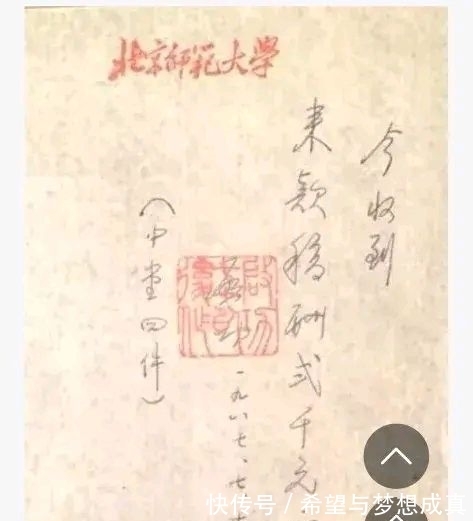 北京师范大学
今收到
来款稿酬弍千元
启功
一九八七、七、
（中堂四件）
快传号 / 希望与梦想成真